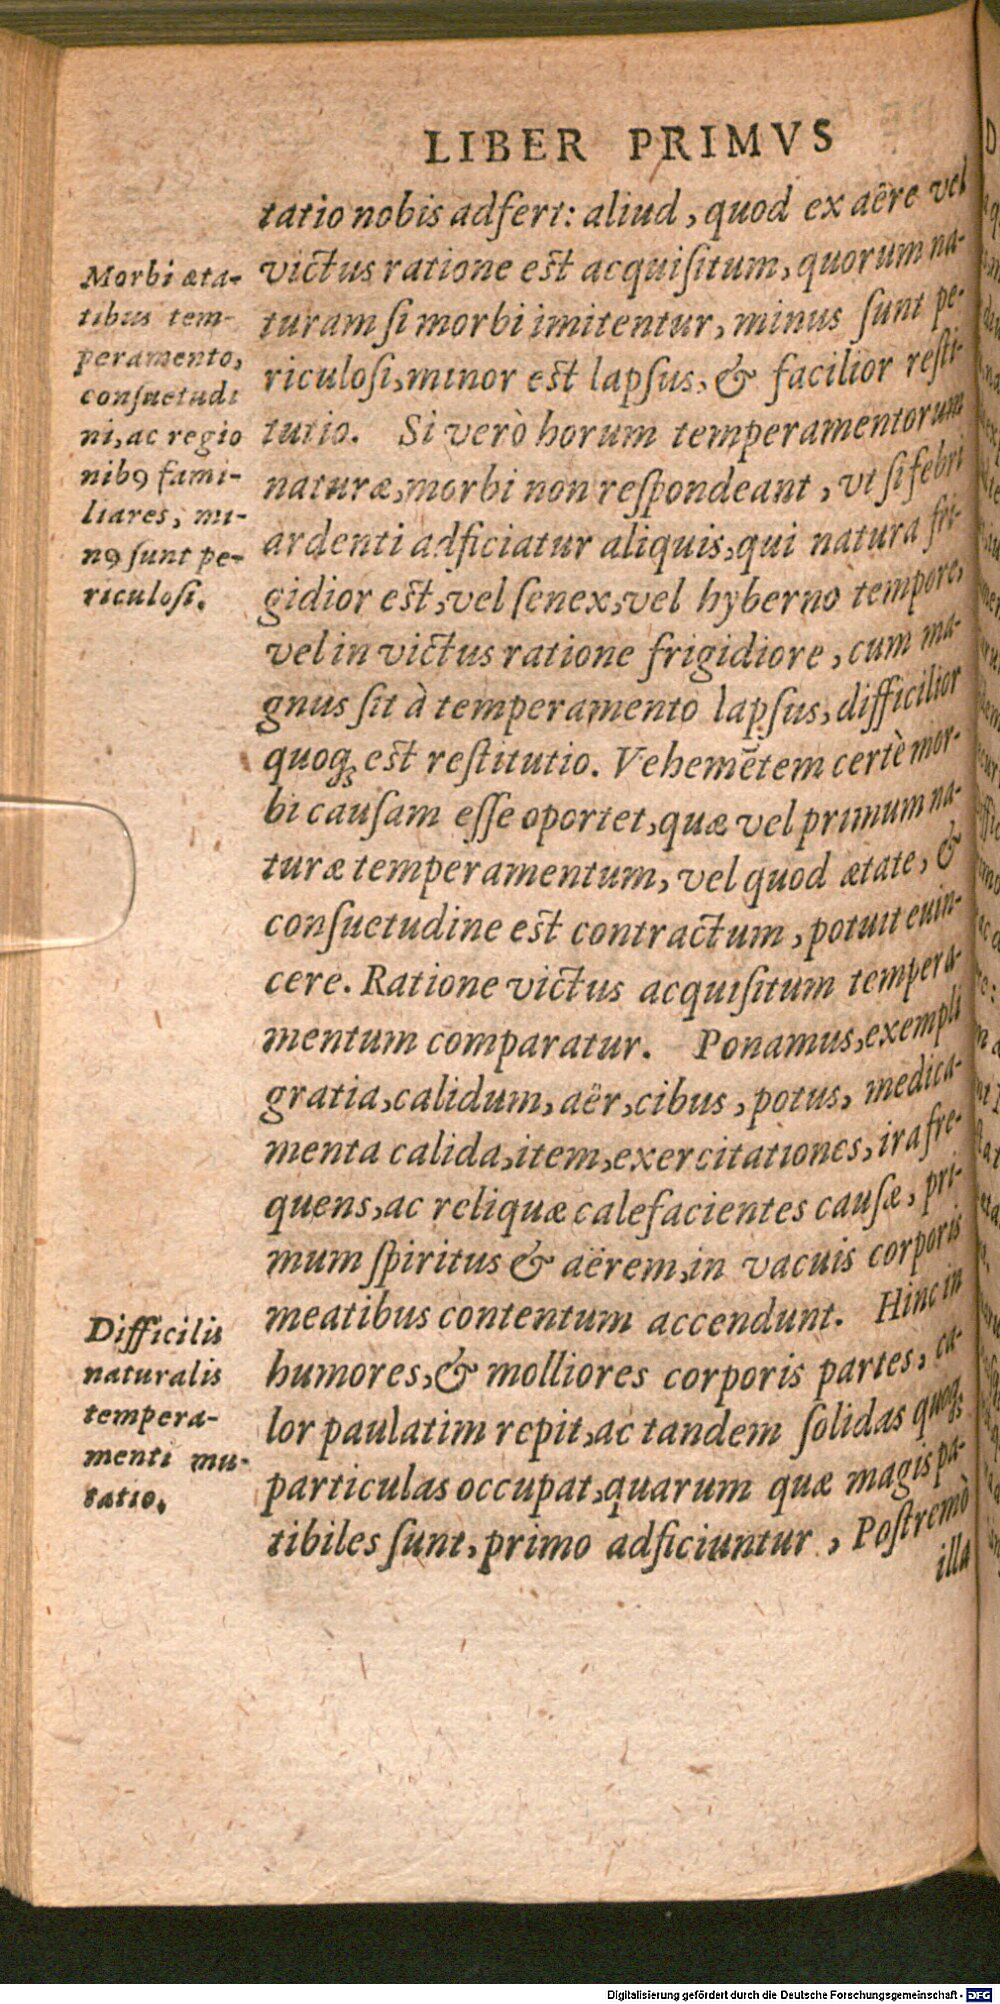 LIBER PRIMVS
tatio nobis adfert: aliud, quod ex aëre vel
victus ratione est acquiſitum, quorum na-
turam ſi morbi imitentur, minus ſunt pe-
riculoſi, minor est lapſus, & facilior reſti-
tutio. Si verò horum temperamentorum
naturæ, morbi non reſpondeant, vt ſi febri
ardenti adficiatur aliquis, qui natura fri-
gidior est, vel ſenex, vel hyberno tempore,
vel in victus ratione frigidiore, cum ma-
gnus ſit à temperamento lapſus, difficilior
quoqꝫ est reſtitutio. Vehemētem certè mor-
bi cauſam eſſe oportet, quæ vel primum na-
turæ temperamentum, vel quod ætate, &
conſuetudine est contractum, potuit euin-
cere. Ratione victus acquiſitum tempera-
mentum comparatur. Ponamus, exempli
gratia, calidum, aër, cibus, potus, medica-
menta calida, item, exercitationes, ira fre-
quens, ac reliquæ calefacientes cauſæ, pri-
mum ſpiritus & aërem, in vacuis corporis
meatibus contentum accendunt. Hinc in
humores, & molliores corporis partes, ca-
lor paulatim repit, ac tandem ſolidas quoqꝫ
particulas occupat, quarum quæ magis pa-
tibiles ſunt, primo adficiuntur, Poſtremò
illa
Morbi æta-
tibus tem-
peramento,
conſuetudi
ni, ac regio
nibꝰ fami-
liares, mi-
nꝰ ſunt pe-
riculoſi.
Difficilis
naturalis
tempera-
menti mu-
tatio.
Digitalisierung gefördert durch die Deutsche Forschungsgemeinschaft - DFG